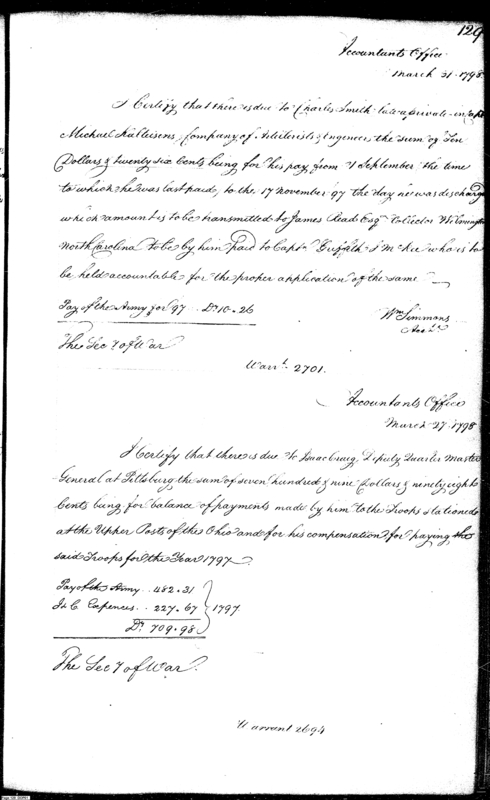 129
Accountants Office
March 31. 1798.
I Certify that there is due to Charles Smith late a private in Capt
Michael Kalteisens Company of Artillerists & Engeneers the sum of Ten
Dollars & twenty six Cents being for his pay from 1 September the time
to which he was last paid, to the 17 November 97 the day he was discharged
which amount is to be transmitted to James Read Esqr Collector Wilmington
North Carolina to be by him paid to Captn Griffith J McRee who is to
be held accountable for the proper application of the same
Pay of the Army for 97 Drs 10.26
Wm Simmons
Acct
The Secy of War
Warrt 2701.
Accountants Office
March 27. 1798
I Certify that there is due to Isaac Craig, Deputy Quarter Master
General at Pittsburg the sum of seven hundred & nine Dollars & ninety eight
Cents being for balance of payments made by him to the Troops stationed
at the Upper Posts of the Ohio and for his compensation for paying the
said Troops for the Year 1797
Pay of the Army .. 482.31
I & C Expences .. 227.67 } 1797
Drs 709.98
The Secy of War.
Warrant 2694